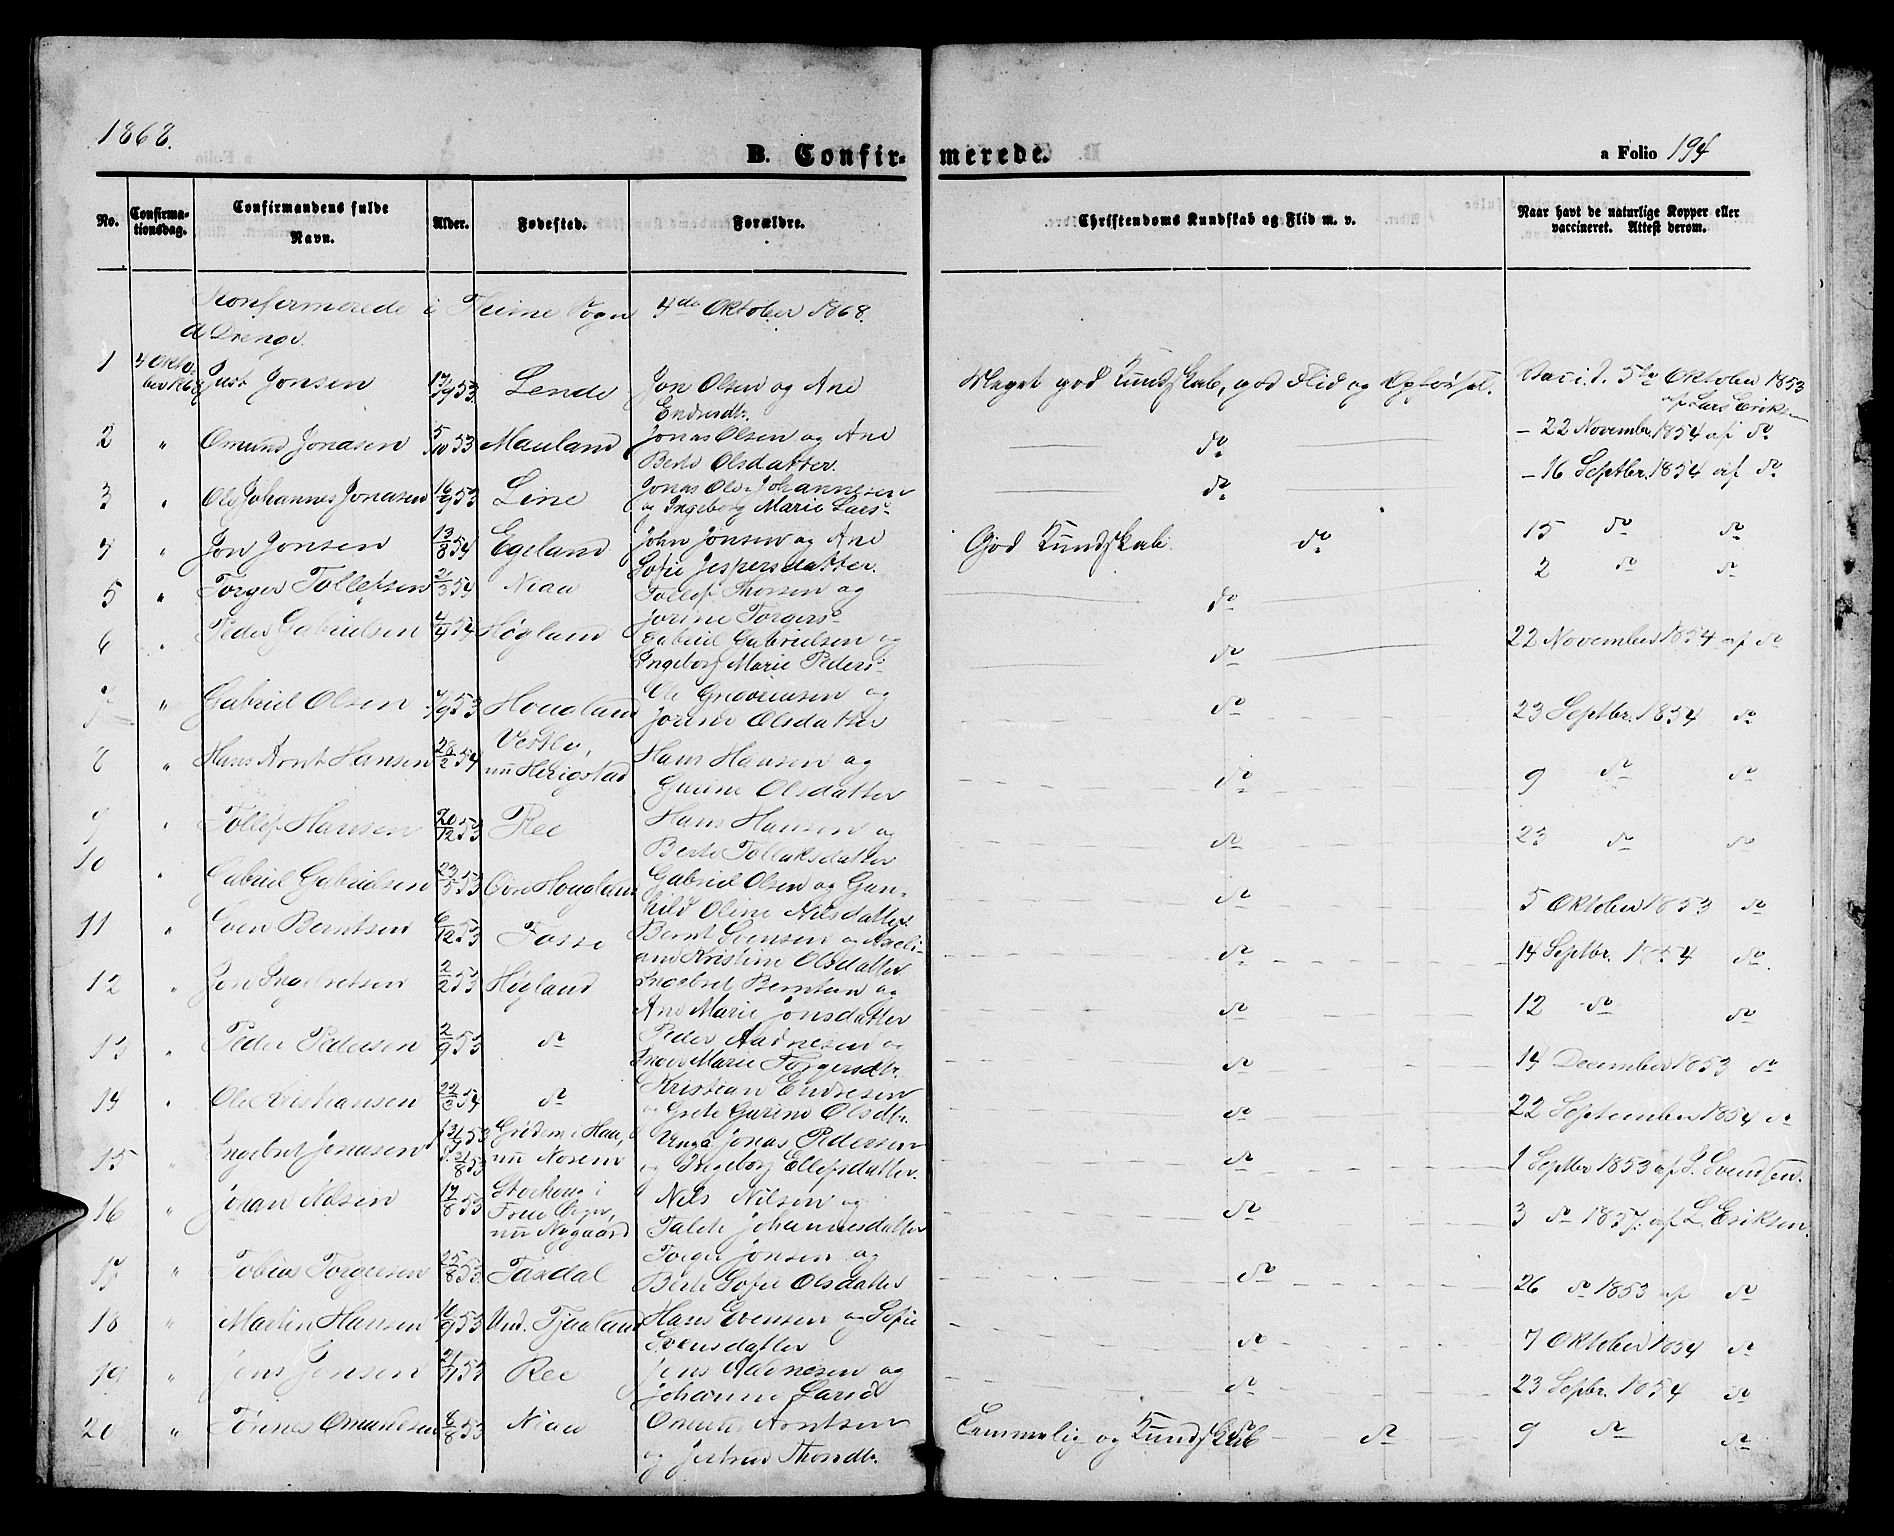 1868.
B. Confir-
merede.
a Folio 194
No.
Confirma-
tionsdag.
Confirmandens fulde
Navn.
Alder.
Fødested.
Forældre.
Christendoms Kundskab og Flid m. v.
Naar havt de naturlige Kopper eller
vaccineret. Attest derom.
Konfirmerede i Theime Sogn 4de Oktober 1868.
a Drenge.
1 4 Okto-
ber 1868 Just Jonsen 17/9 53. Lende Jon Olsen og Ane
Endresdtr. Meget god Kundskab, god Flid og Opførsel. Vacc. d. 5te Oktober 1853
af Lars Eriksen
2 " Omund Jonasen 5/10 53 Mauland Jonas Olsen og Ane
Berte Olsdatter. do - 22 Novembr. 1854 af do
3 " Ole Johannes Jonasen 16/9 53 Line Jonas Ols. Johannesen
og Ingeborg Marie Lars do - 16 Septbr. 1854 af do
4 " Jon Jonsen 13/8 54 Egeland John Jonsen og Ane
Sofie Jespersdatter. God Kundskab. do 15 do do
5 " Torger Tollefsen 2/3 54 Niaa Tollef Thorsen og
Jorine Torgers do 2 do do
6 " Peder Gabrielsen 4/4 54 Høgland Gabriel Gabrielsen og
Ingeborg Marie Peders do 22 November 1854 af do
7 " Gabriel Olsen /9 53 Hougland Ole og
Jorine Olsdatter do 23 Septbr. 1854 do
8 " Hans Arnt Hansen 28/2 54 Vestly,
nu Herigstad Hans Hansen og
Gurine Olsdatter do 9 do do
9 " Tollef Hansen 20/12 53 Ree Hans Hansen og
Berte Tollaksdatter do 23 do do
10 " Gabriel Gabrielsen 23/5 53 Øvre Hougland Gabriel Olsen og Gun-
hild Oline Nilsdatter do 5 Oktober 1853 do
11 " Sven Berntsen 6/12 53 Fosse Bernt Svensen og Axeli-
ane Kristine Olsdatter do 14 Septbr. 1854 do.
12 " Jon Ingebretsen 2/2 53 Høgland Ingebret Berntsen og
Ane Marie Jonsdatter do 12 do do
13 " Peder Pedersen 2/9 53 do Peder Aadnesen og
Inger Marie Torgersdtr. do 14 December 1853 do
14 " Ole Kristiansen 22/3 54 do Kristian Endresen
og Grete Gurine Olsdtr. do 22 September 1854 do
15 " Ingebret Jonasen 13/7 53
d. 21/8 53 Grødem i Haa,
nu Norem Ungk. Jonas Pedersen
og Ingeborg Ellefsdatter. do 1 Septbr 1853 af S. Svendsen.
16 " Johan Nilsen 17/8 53 Stokken i
Sogn,
nu Nygaard Nels Nilsen og
Talete Johannesdatter do 3 do 1857. af L. Eriksen.
17 " Tobias Torgersen 25/8 53 Taxdal Torger Jonsen og
Berte Sofie Olsdatter do 26 do 1853 af do
18 " Martin Hansen /9 53 Und. Tjaaland Hans Evensen og Sofie
Svensdatter do 7 Oktober 1854 do
19 " Jens Jensen 2/7 53 Ree Jens Aadnesen og
Johanne Larsd do 23 Sepbr. 1854 do
20 " Tønnes Omundsen 8/8 53 Niaa Omund Arntsen
og Jertrud Thorsdtr. Temmelig og Kundskab do 9 do do